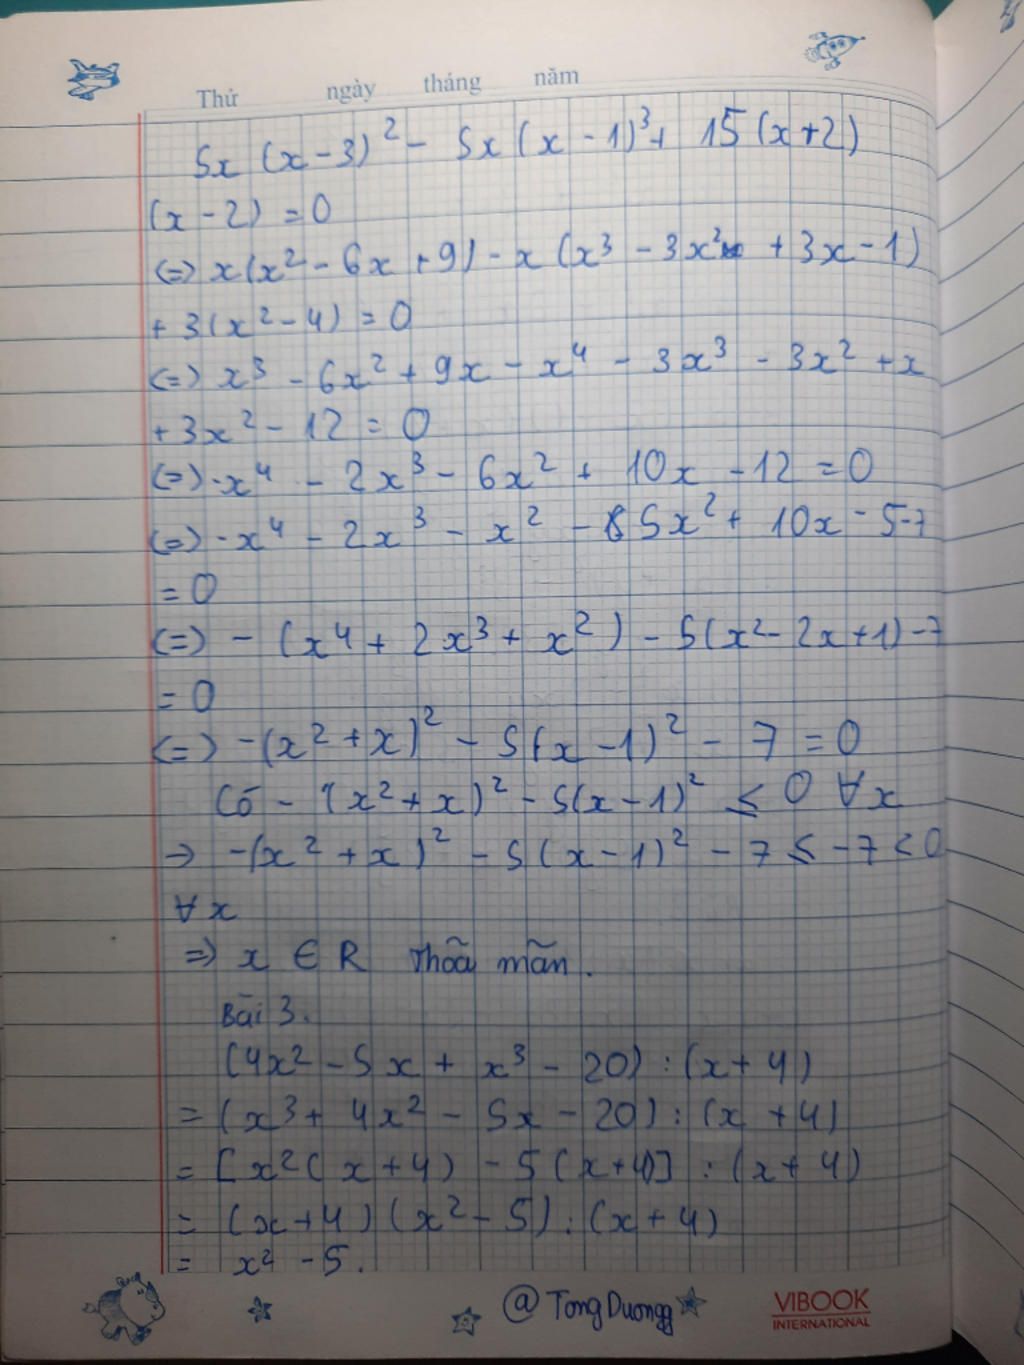 Thứ ngày tháng năm
5x (x - 3)² - 5x (x - 1)³ + 15 (x + 2)
(x - 2) = 0
(=) x(x² - 6x + 9) - x (x³ - 3x² + 3x - 1)
+ 3(x² - 4) = 0
(=) x³ - 6x² + 9x - x⁴ - 3x³ - 3x² + x
+ 3x² - 12 = 0
(=) -x⁴ - 2x³ - 6x² + 10x - 12 = 0
(=) -x⁴ - 2x³ - x² - 5x² + 10x - 5 - 7
= 0
(=) - (x⁴ + 2x³ + x²) - 5(x² - 2x + 1) - 7
= 0
(=) -(x² + x)² - 5(x - 1)² - 7 = 0
Có - (x² + x)² - 5(x - 1)² ≤ 0 ∀x
→ -(x² + x)² - 5(x - 1)² - 7 ≤ -7 < 0
∀x
=> x ∈ R thoã mãn.
Bài 3.
(4x² - 5x + x³ - 20) : (x + 4)
= (x³ + 4x² - 5x - 20) : (x + 4)
= [x²(x + 4) - 5(x + 4)] : (x + 4)
= (x + 4)(x² - 5) : (x + 4)
= x² - 5.
@TongDuongg
VIBOOK
INTERNATIONAL